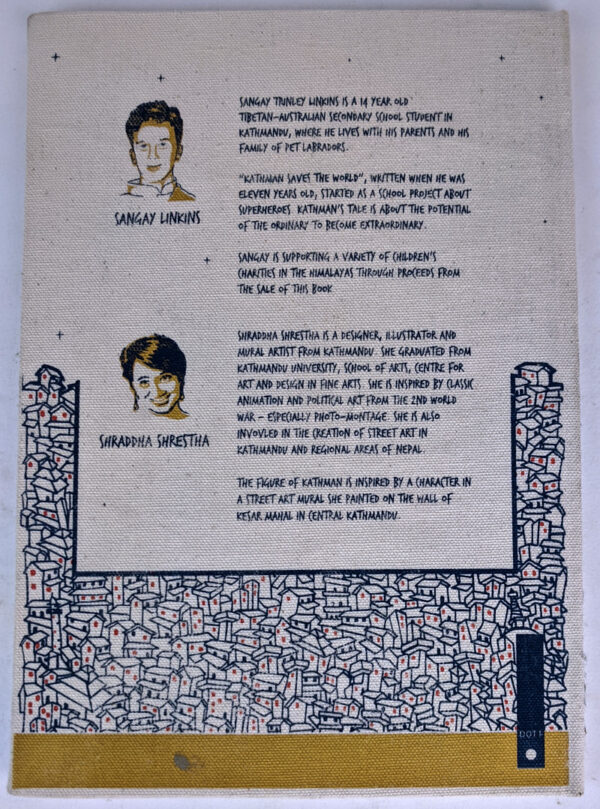 SANGAY TRINLEY LINKINS IS A 14 YEAR OLD
TIBETAN-AUSTRALIAN SECONDARY SCHOOL STUDENT IN
KATHMANDU, WHERE HE LIVES WITH HIS PARENTS AND HIS
FAMILY OF PET LABRADORS.
"KATHMAN SAVES THE WORLD", WRITTEN WHEN HE WAS
ELEVEN YEARS OLD, STARTED AS A SCHOOL PROJECT ABOUT
SUPERHEROES. KATHMAN'S TALE IS ABOUT THE POTENTIAL
OF THE ORDINARY TO BECOME EXTRAORDINARY.
SANGAY IS SUPPORTING A VARIETY OF CHILDREN'S
CHARITIES IN THE HIMALAYAS THROUGH PROCEEDS FROM
THE SALE OF THIS BOOK.
SANGAY LINKINS
SHRADDHA SHRESTHA IS A DESIGNER, ILLUSTRATOR AND
MURAL ARTIST FROM KATHMANDU. SHE GRADUATED FROM
KATHMANDU UNIVERSITY, SCHOOL OF ARTS, CENTRE FOR
ART AND DESIGN IN FINE ARTS. SHE IS INSPIRED BY CLASSIC
ANIMATION AND POLITICAL ART FROM THE 2ND WORLD
WAR - ESPECIALLY PHOTO-MONTAGE. SHE IS ALSO
INVOVLED IN THE CREATION OF STREET ART IN
KATHMANDU AND REGIONAL AREAS OF NEPAL.
THE FIGURE OF KATHMAN IS INSPIRED BY A CHARACTER IN
A STREET ART MURAL SHE PAINTED ON THE WALL OF
KESAR MAHAL IN CENTRAL KATHMANDU.
SHRADDHA SHRESTHA